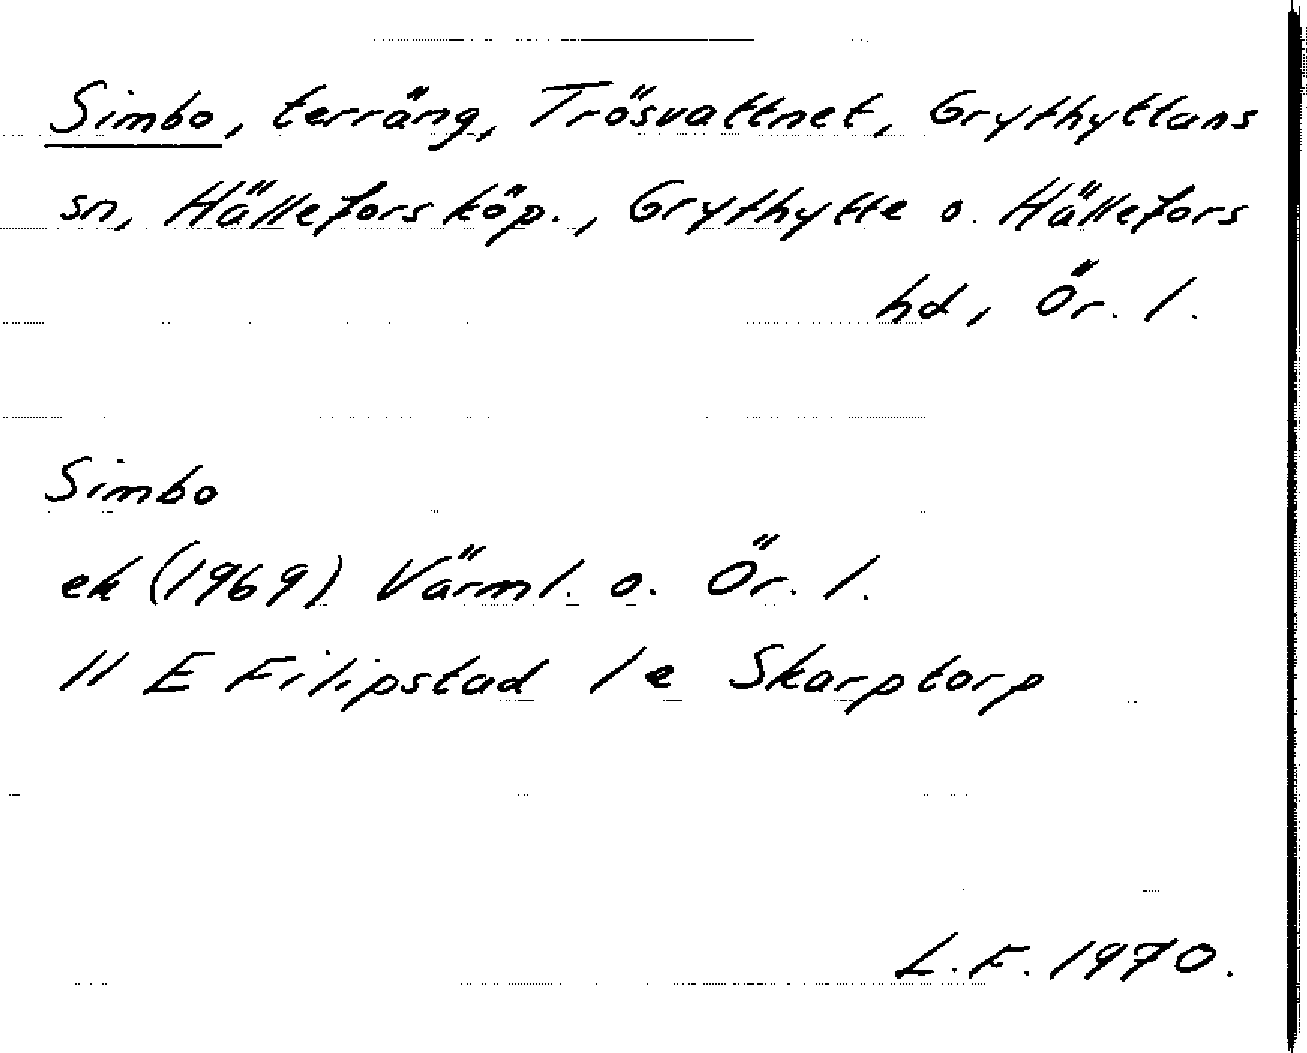 Simbo, terräng, Trösvattnet, Grythyttans
sn, Hällefors köp., Grythytte o. Hällefors
hd, Ör. l.
Simbo
ek (1969) Värml. o. Ör. l.
11 E Filipstad 1e Skarptorp
L.F. 1970.